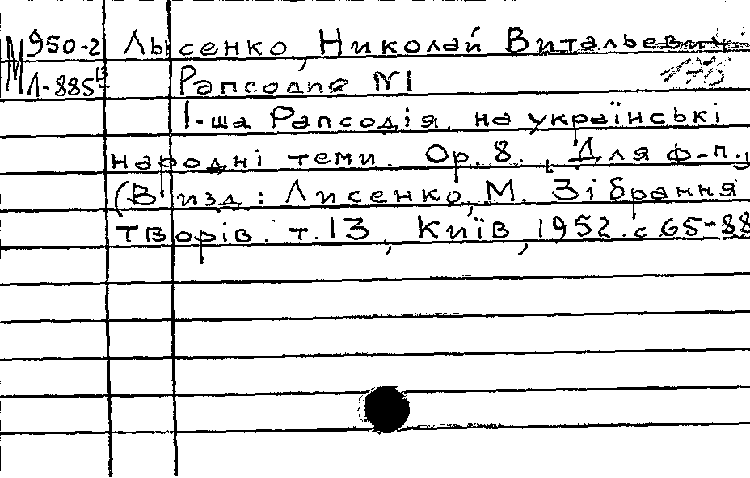 М 950-2 Лысенко, Николай Витальевич
Л-885 13 Рапсодия №1
1-ша Рапсодія на українські
народні теми. Ор. 8. [Для ф-п.]
(В изд: Лисенко, М. Зібрання
творів. т. 13, Київ, 1952. с 65-88